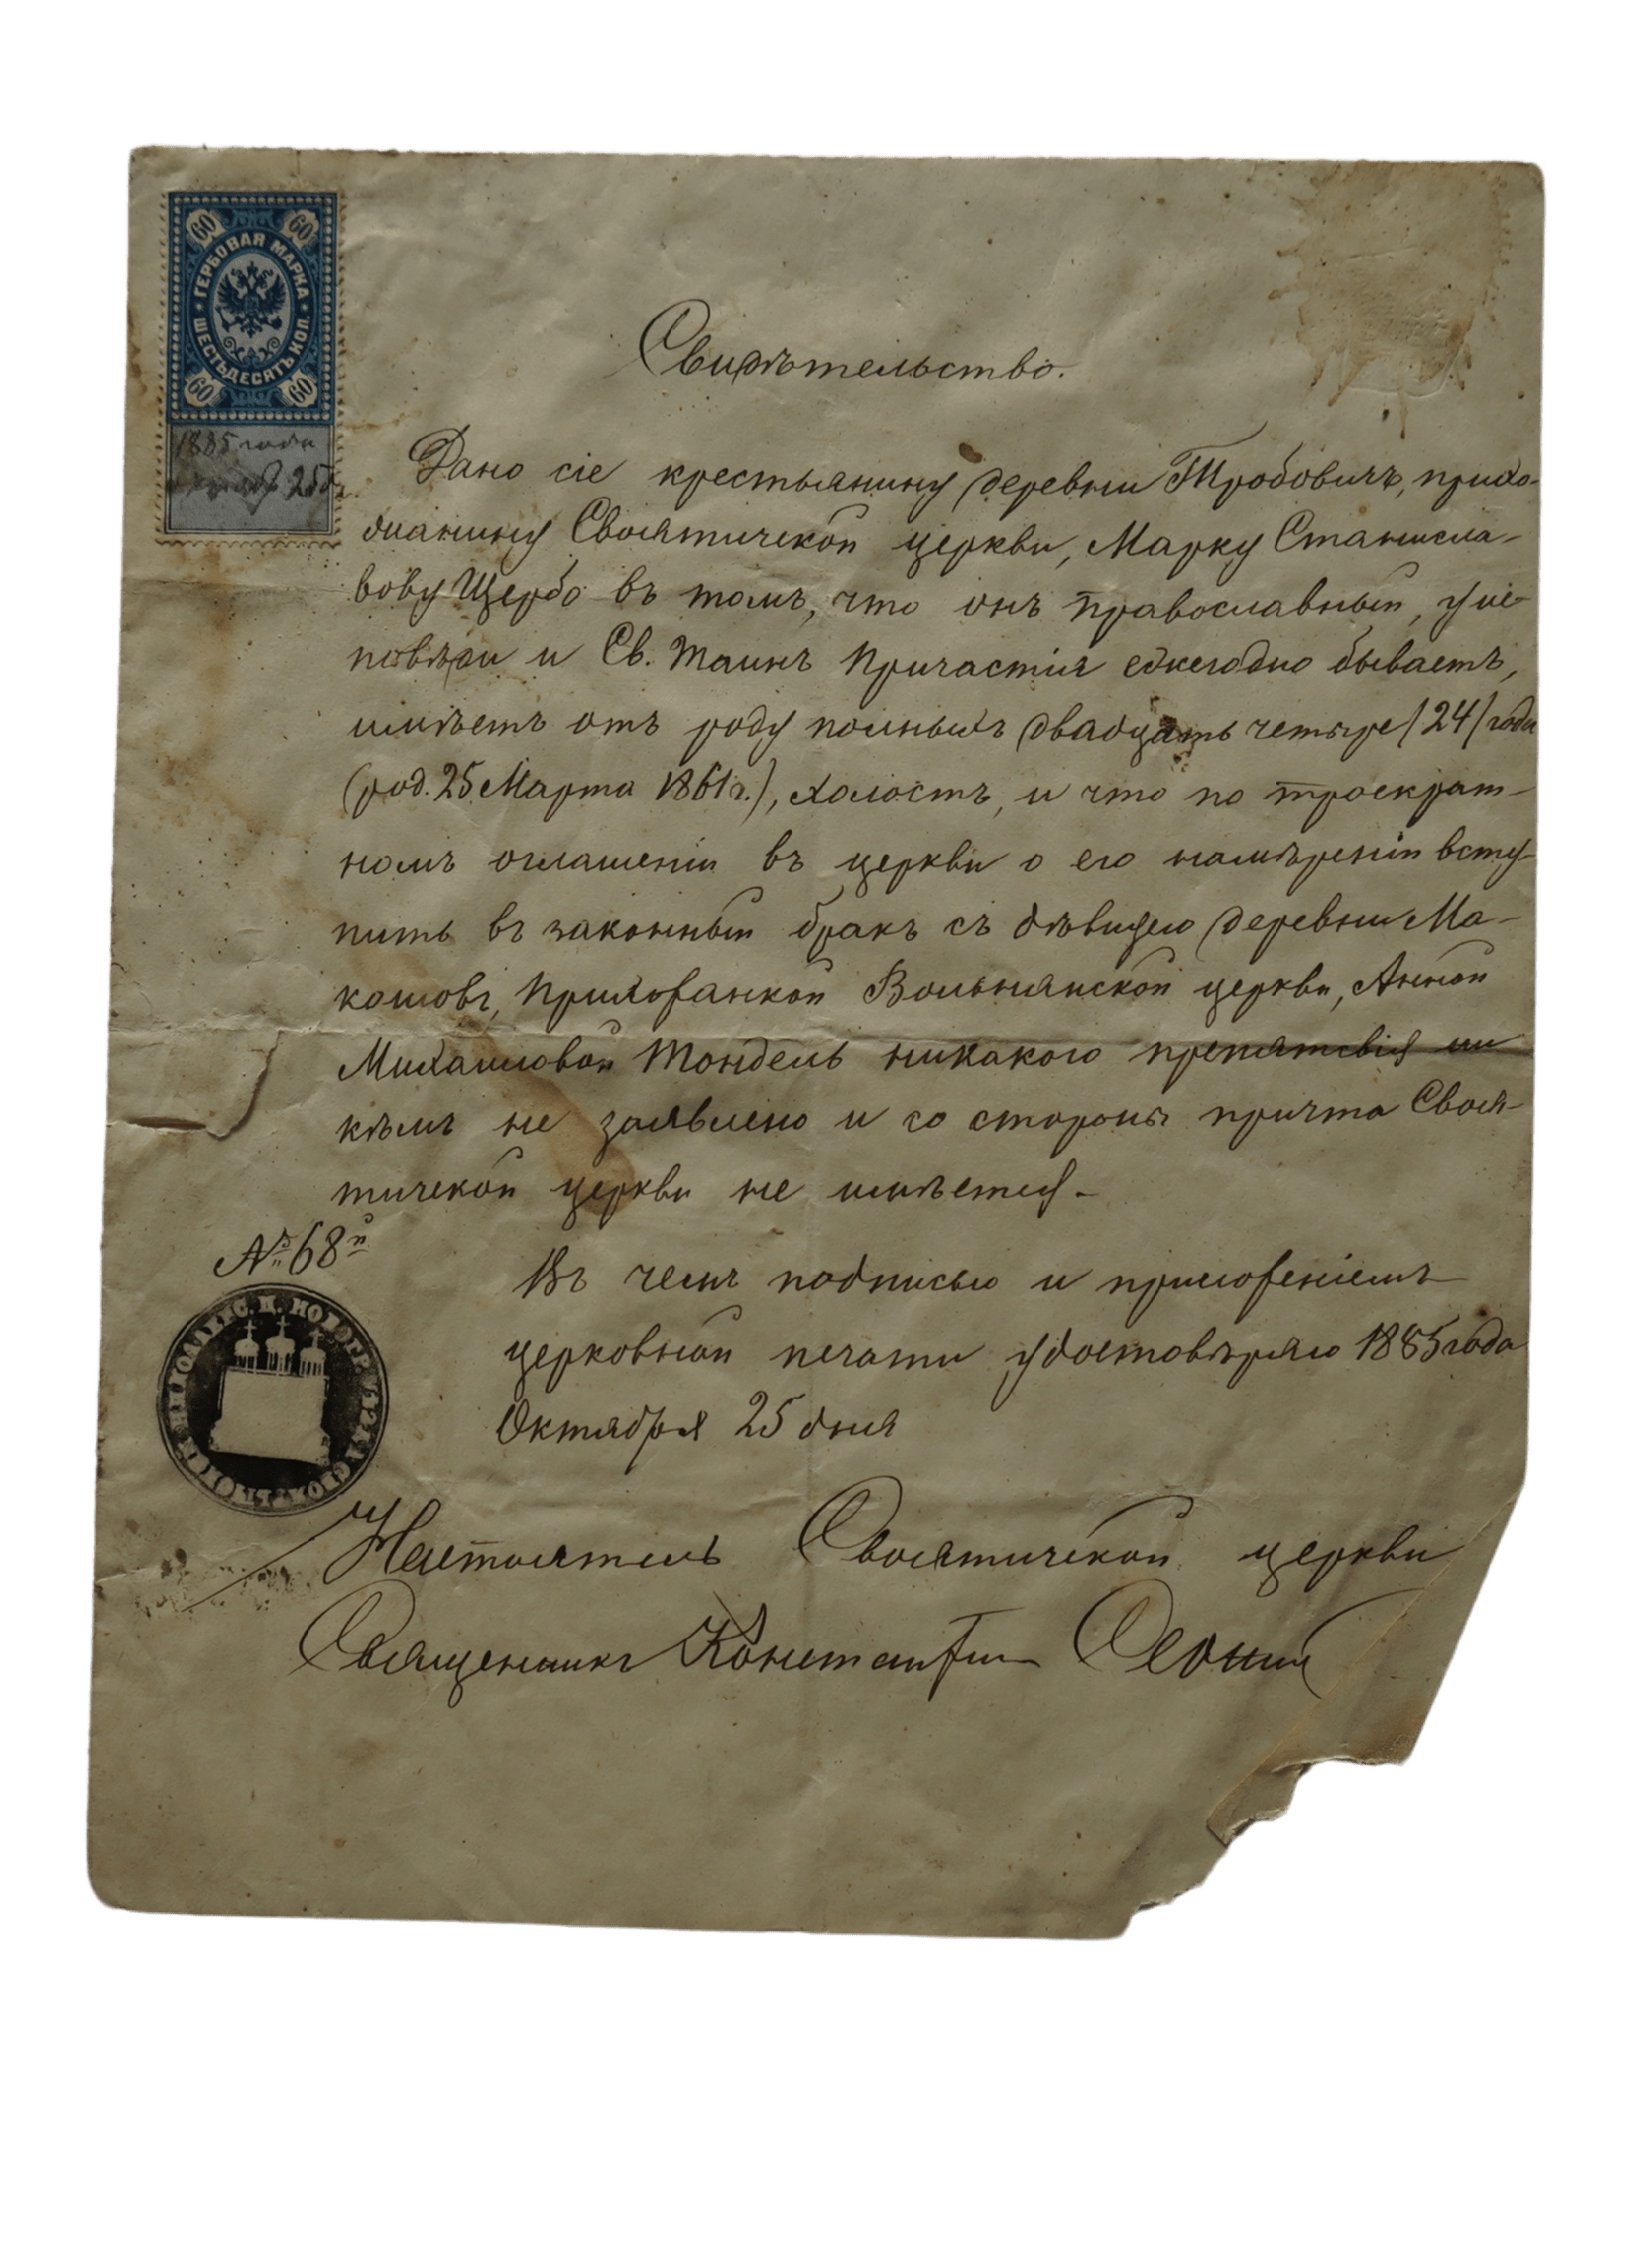 60 60
ГЕРБОВАЯ МАРКА
ШЕСТЬДЕСЯТЪ КОП.
60 60
1885 года
25 д.
Свидѣтельство.
Дано сіе крестьянину деревни Тробовичъ, прихо-
жанину Своятичской церкви, Марку Станисла-
вову Щербо въ томъ, что онъ православный, у ис-
повѣди и Св. Таинъ Причастія ежегодно бываетъ,
имѣетъ отъ роду полныхъ двадцать четыре /24/ года
(род. 25 Марта 1861 г.), холостъ, и что по троекрат-
номъ оглашеніи въ церкви о его намѣреніи всту-
пить въ законный бракъ съ дѣвицею деревни Ма-
кошовъ, Прихожанкой Вольнянской церкви, Анной
Михайловой Тондель никакого препятствія ни
кѣмъ не заявлено и со стороны причта Своя-
тичской церкви не имѣется.
№ 68й
Въ чемъ подписью и приложеніемъ
церковной печати удостовѣряю 1885 года
Октября 25 дня
Настоятель Своятичской церкви
Священникъ Константин